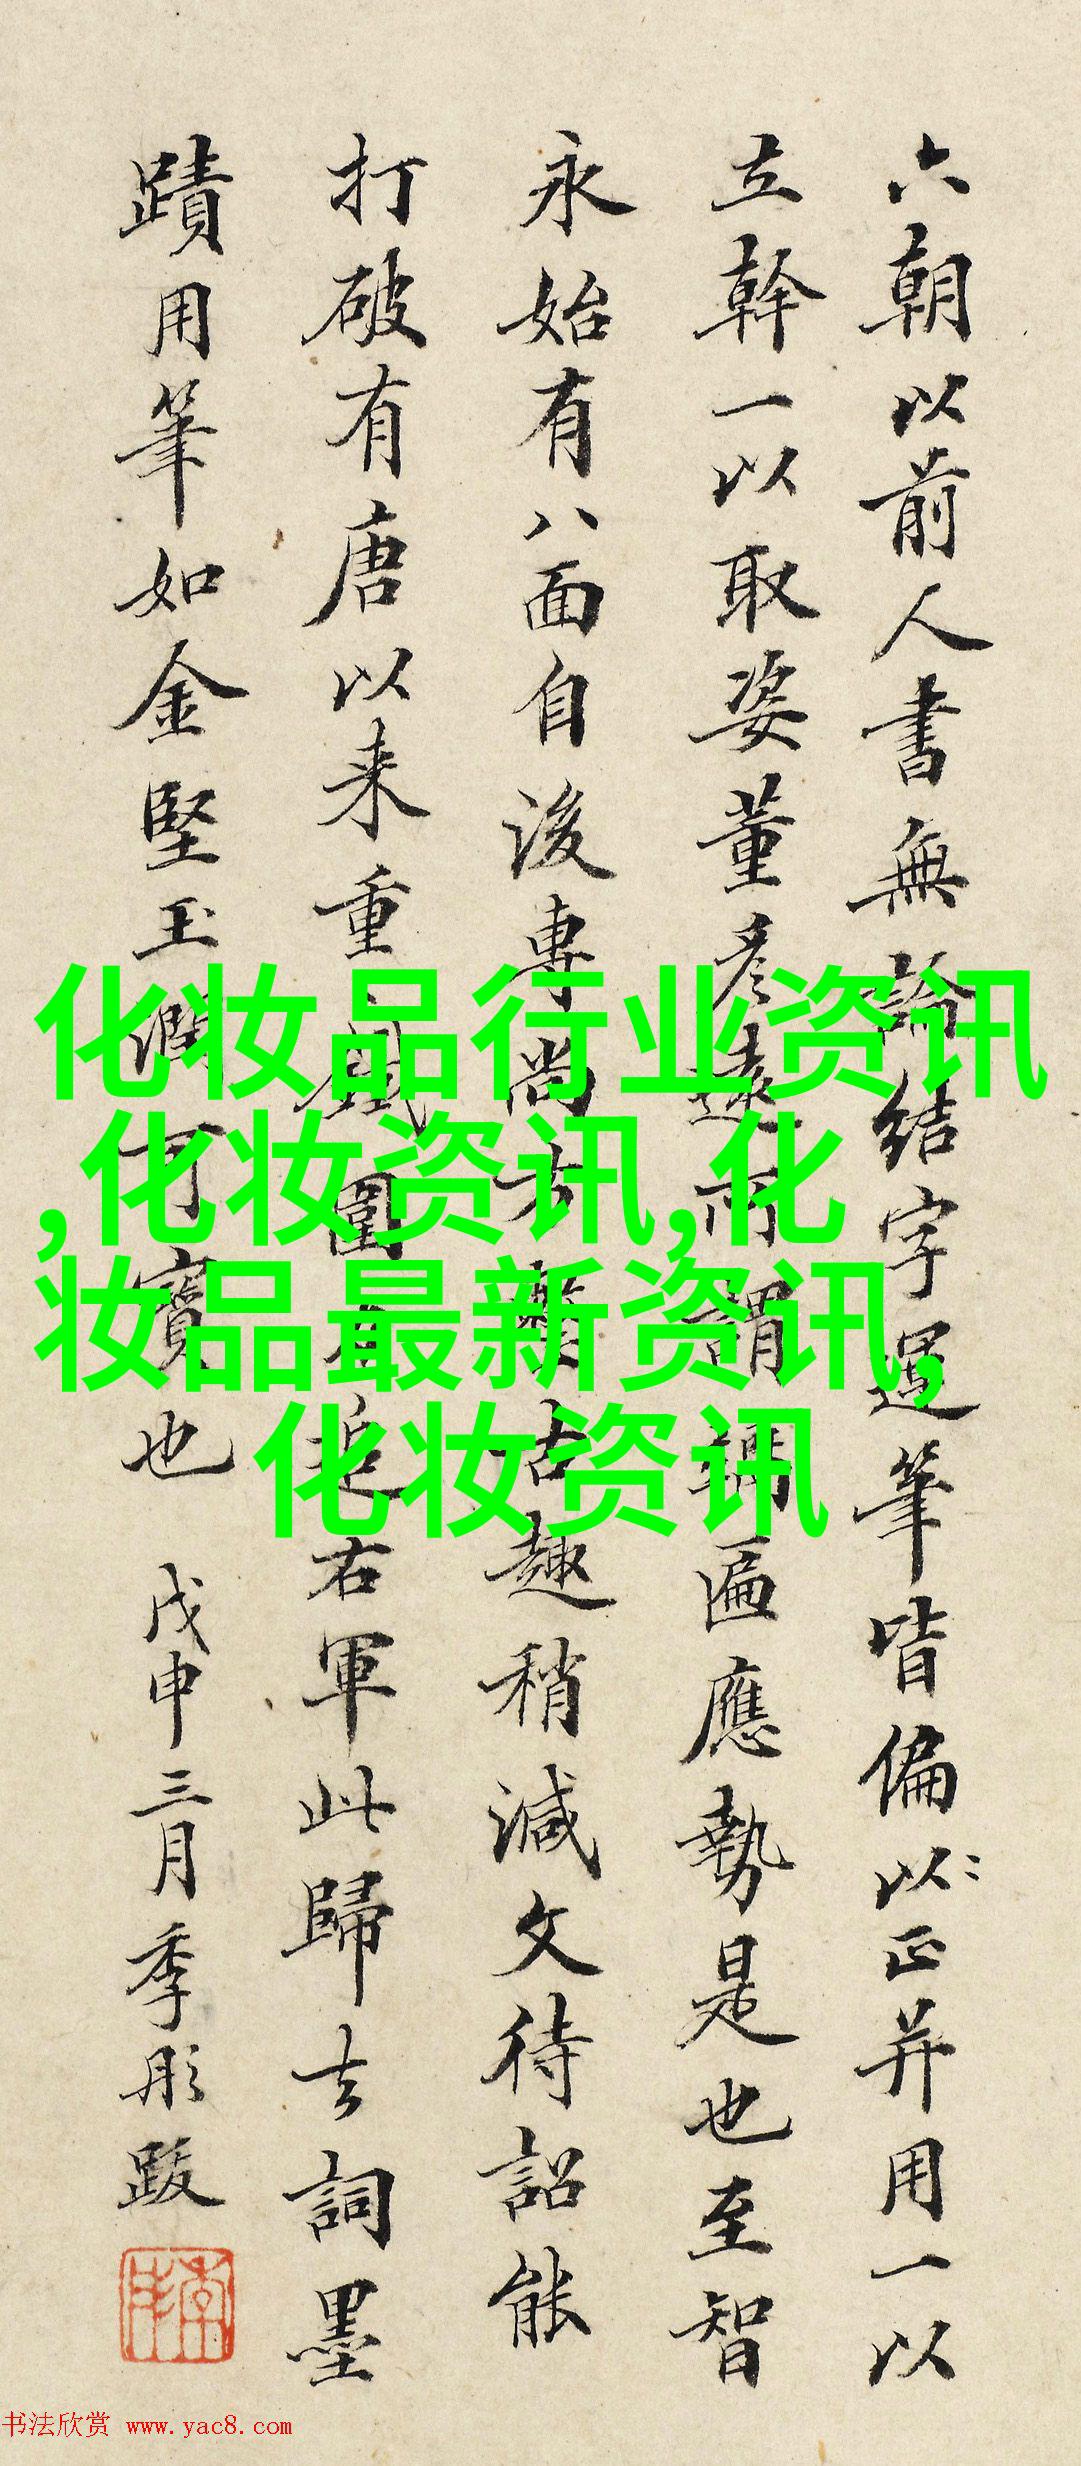 六朝以前人書無論結字運筆皆偏以正并用一以
立幹一以取姿董彦遠所謂匾應勢是也至智
永始有八面自後専尚方整古趣稍減文待詔能
打破有唐以来重圍直追右軍此歸去詞墨
蹟用筆如金堅玉潤可寳也 戊申三月季彤跋
化妆品行业资讯
,化妆资讯,化
妆品最新资讯,
化妆资讯
书法欣赏 www.yac8.com